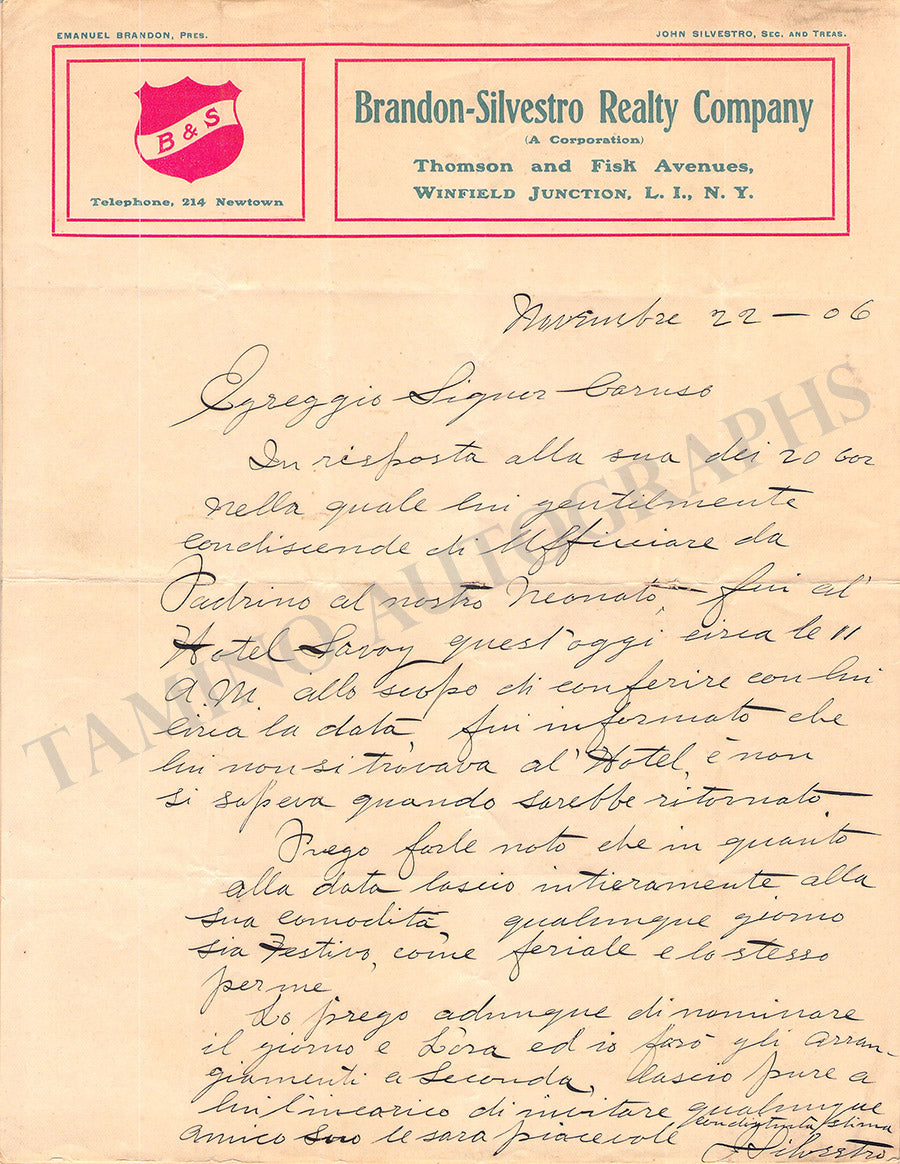 EMANUEL BRANDON, PRES.
JOHN SILVESTRO, SEC. AND TREAS.
B & S
Telephone, 214 Newtown
Brandon-Silvestro Realty Company
(A Corporation)
Thomson and Fisk Avenues,
WINFIELD JUNCTION, L. I., N. Y.
Novembre 22 — 06
Egreggio Signor Caruso
In risposta alla sua dei 20 cor
nella quale lui gentilmente
condiscende di Ufficiare da
Padrino al nostro Neonato, — fui al'
Hotel Savoy quest'oggi circa le 11
A.M. allo scopo di conferire con lui
circa la data, fui informato che
lui non si trovava al' Hotel, e non
si sapeva quando sarebbe ritornato
Prego farle noto che in quanto
alla data lascio intieramente alla
sua comodità, qualunque giorno
sia Festivo, come feriale e lo stesso
per me
Lo prego adunque di nominare
il giorno e L'ora ed io farò gli arran-
giamenti a Seconda, lascio pure a
lui l'incarico di invitare qualunque
amico suo le sara piacevole
con distinta stima
J Silvestro
TAMINO AUTOGRAPHS